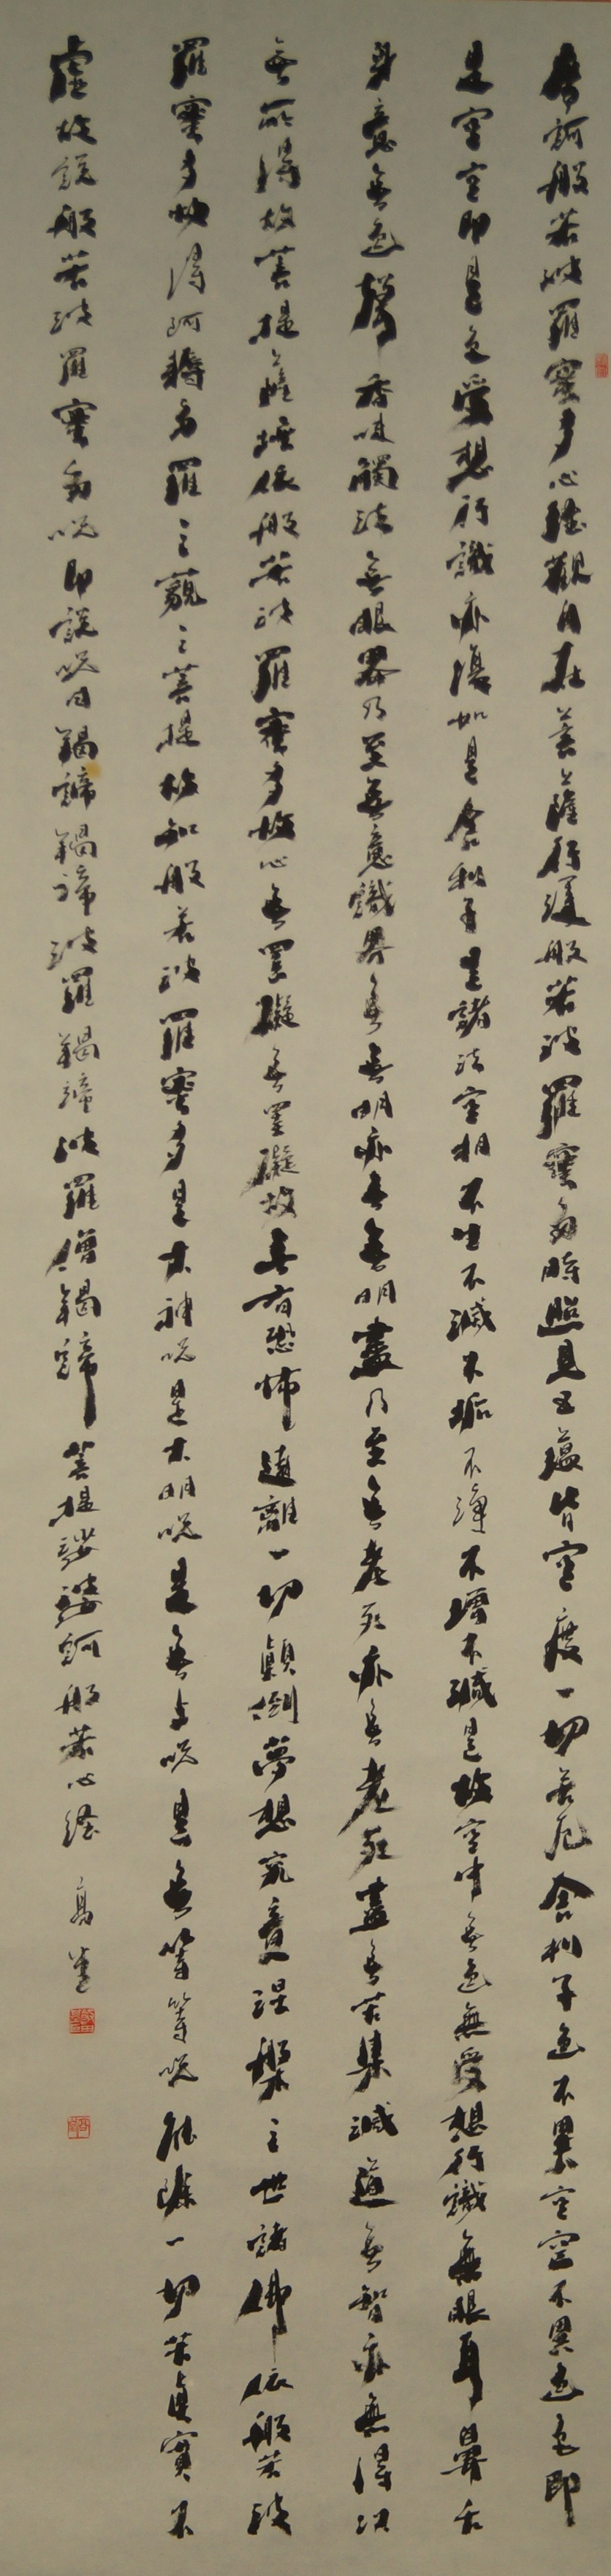 摩訶般若波羅蜜多心経觀自在菩薩行深般若波羅蜜多時照見五蘊皆空度一切苦厄舎利子色不異空空不異色色即
是空空即是色受想行識亦復如是舎利子是諸法空相不生不滅不垢不淨不增不減是故空中無色無受想行識無眼耳鼻舌
身意無色聲香味觸法無眼界乃至無意識界無無明亦無無明盡乃至無老死亦無老死盡無苦集滅道無智亦無得以
無所得故菩提薩埵依般若波羅蜜多故心無罣礙無罣礙故無有恐怖遠離一切顛倒夢想究竟涅槃三世諸佛依般若波
羅蜜多故得阿耨多羅三藐三菩提故知般若波羅蜜多是大神呪是大明呪是無上呪是無等等呪能除一切苦真實不
虛故説般若波羅蜜多呪即説呪曰羯諦羯諦波羅羯諦波羅僧羯諦菩提娑婆訶般若心経 高